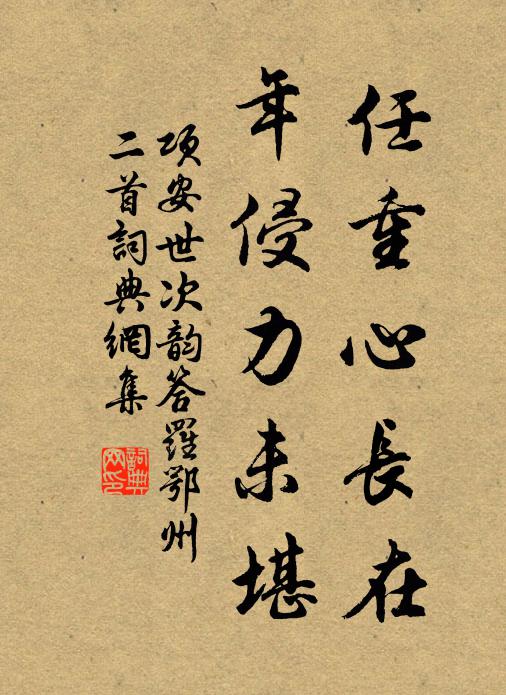 任重心長在
年侵力未堪
項安世次韵答羅鄂州
二首詞典網集
詞典
网印